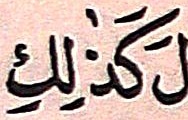 لَ كَذَٰلِكِ